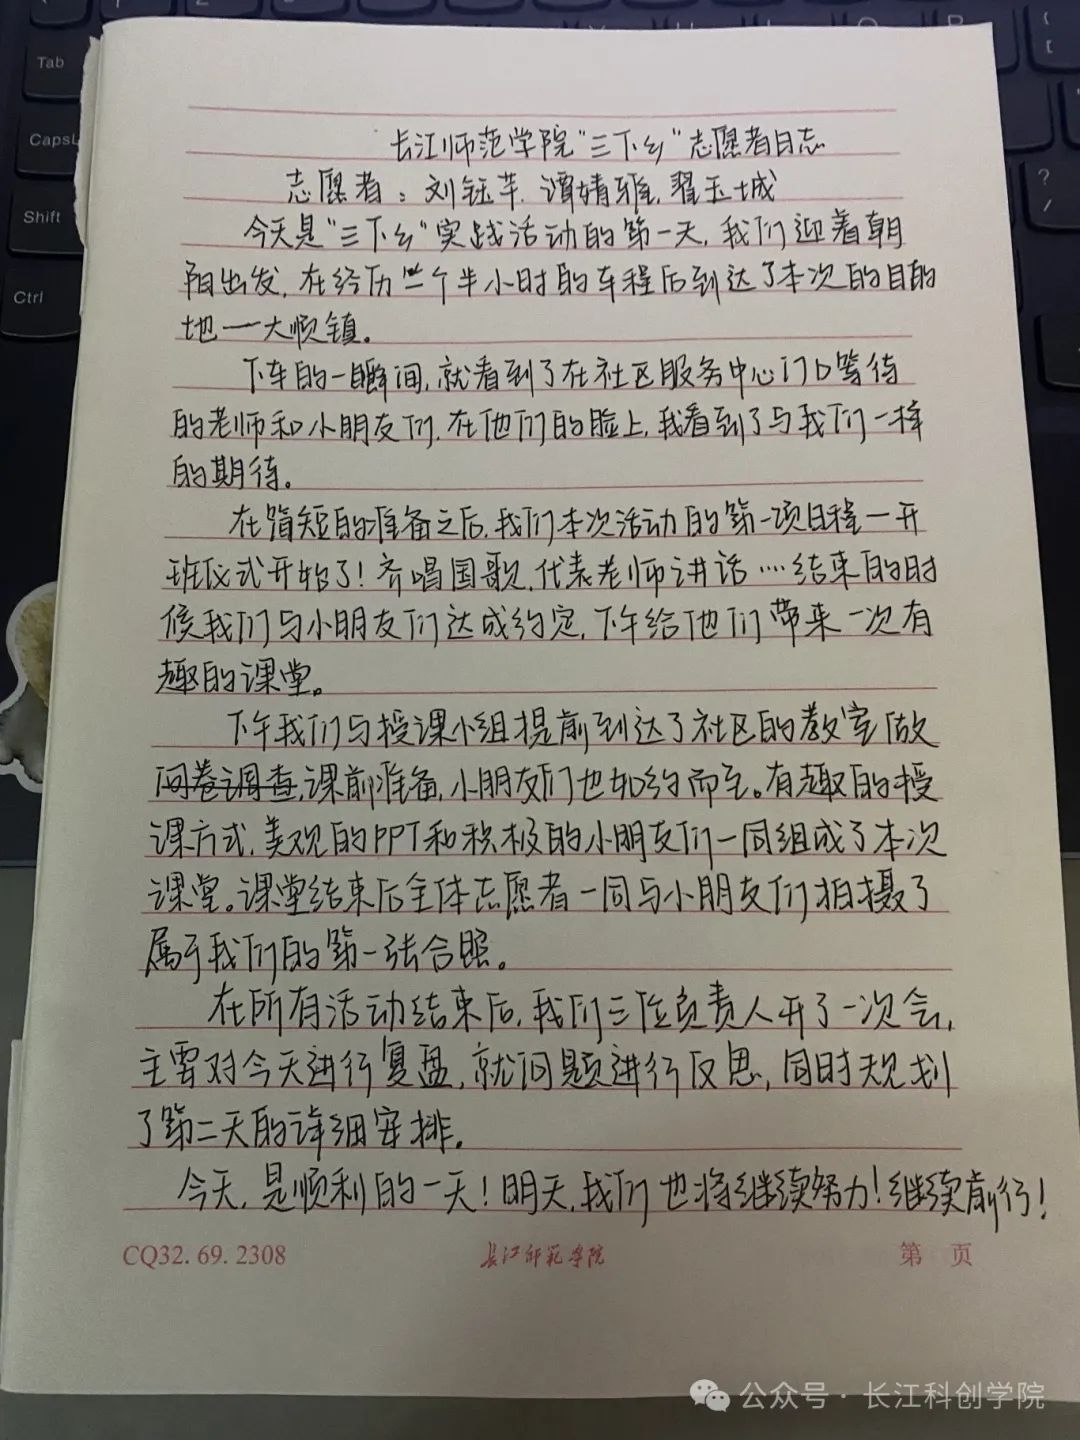 Tab
Caps
Shift
Ctrl
长江师范学院“三下乡”志愿者日志
志愿者：刘钰芊.谭婧雅.翟玉城
今天是“三下乡”实践活动的第一天，我们迎着朝
阳出发，在经历一个半小时的车程后到达了本次的目的
地一大顺镇。
下车的一瞬间，就看到了在社区服务中心门口等待
的老师和小朋友们，在他们的脸上，我看到了与我们一样
的期待。
在简短的准备之后，我们本次活动的第一项日程一开
班仪式开始了！齐唱国歌，代表老师讲话……结束的时
候我们与小朋友们达成约定，下午给他们带来一次有
趣的课堂。
下午我们与授课小组提前到达了社区的教室做
问卷调查，课前准备，小朋友们也如约而至。有趣的授
课方式，美观的PPT和积极的小朋友们一同组成了本次
课堂。课堂结束后全体志愿者一同与小朋友们拍摄了
属于我们的第一张合照。
在所有活动结束后，我们三位负责人开了一次会，
主要对今天进行复盘，就问题进行反思，同时规划
了第二天的详细安排。
今天，是顺利的一天！明天，我们也将继续努力！继续前行！
CQ32.69.2308 长江师范学院 第 页
公众号·长江科创学院